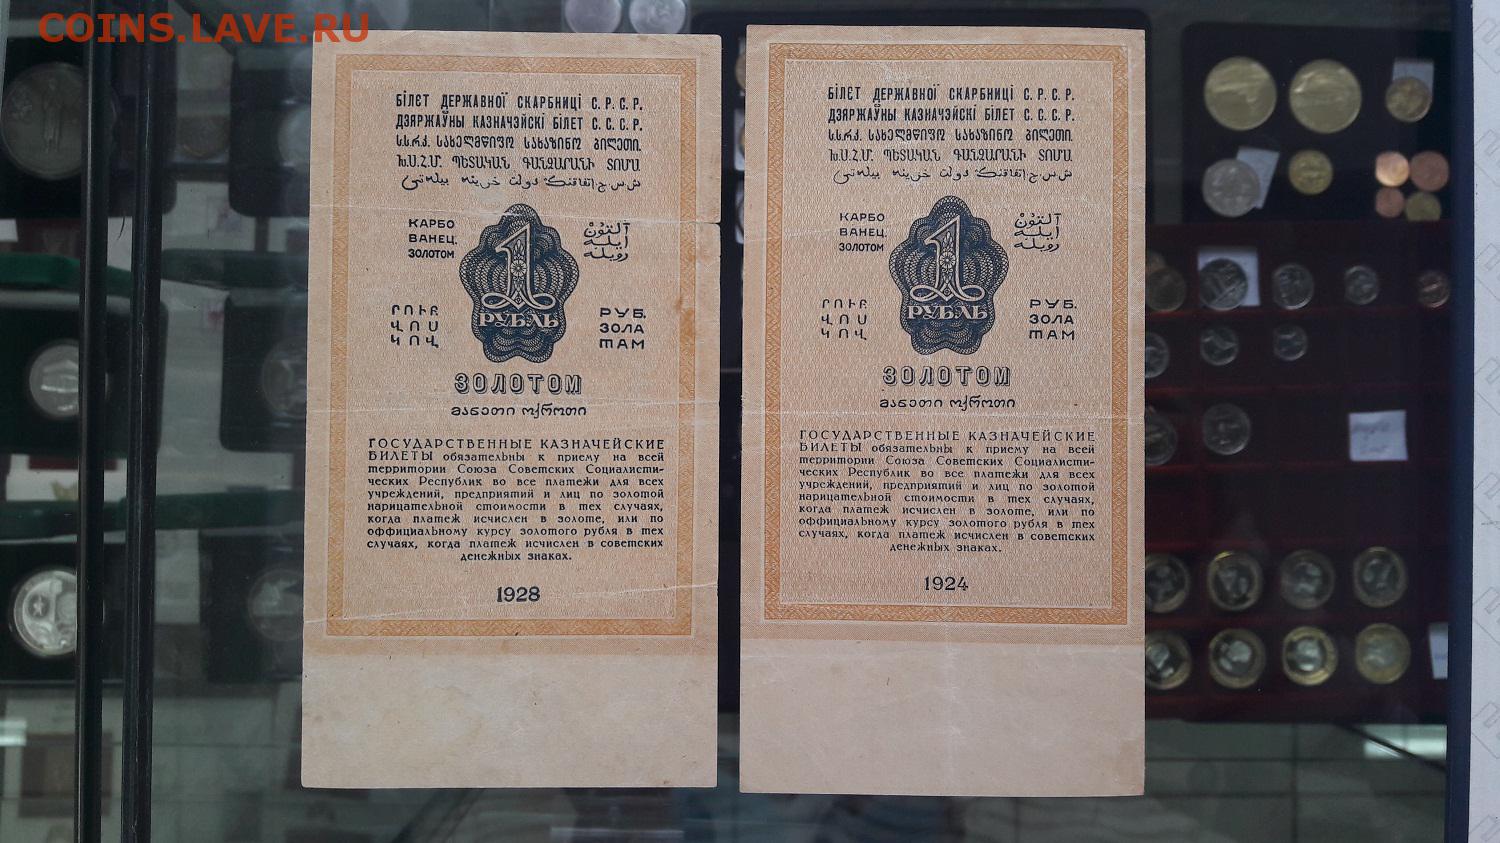 COINS.LAVE.RU
БІЛЄТ ДЕРЖАВНОЇ СКАРБНИЦІ С.Р.С.Р.
ДЗЯРЖАЎНЫ КАЗНАЧЭЙСКІ БІЛЕТ С.С.С.Р.
ს.ს.რ.კ. სახელმწიფო სახაზინო ბილეთი.
Խ.Ս.Հ.Մ. ՊԵՏԱԿԱՆ ԳԱՆՁԱՐԱՆԻ ՏՈՄՍ
КАРБО
ВАНЕЦ.
ЗОЛОТОМ
آلتون
ایله
روبله
1
РУБЛЬ
ՐՈՒԲ
ՎՈՍ
ԿՈՎ
РУБ.
ЗОЛА
ТАМ
ЗОЛОТОМ
მანეთი ოქროთი
ГОСУДАРСТВЕННЫЕ КАЗНАЧЕЙСКИЕ
БИЛЕТЫ обязательны к приему на всей
территории Союза Советских Социалисти-
ческих Республик во все платежи для всех
учреждений, предприятий и лиц по золотой
нарицательной стоимости в тех случаях,
когда платеж исчислен в золоте, или по
оффициальному курсу золотого рубля в тех
случаях, когда платеж исчислен в советских
денежных знаках.
1928
БІЛЄТ ДЕРЖАВНОЇ СКАРБНИЦІ С.Р.С.Р.
ДЗЯРЖАЎНЫ КАЗНАЧЭЙСКІ БІЛЕТ С.С.С.Р.
ს.ს.რ.კ. სახელმწიფო სახაზინო ბილეთი.
Խ.Ս.Հ.Մ. ՊԵՏԱԿԱՆ ԳԱՆՁԱՐԱՆԻ ՏՈՄՍ
КАРБО
ВАНЕЦ.
ЗОЛОТОМ
آلتون
ایله
روبله
1
РУБЛЬ
ՐՈՒԲ
ՎՈՍ
ԿՈՎ
РУБ.
ЗОЛА
ТАМ
ЗОЛОТОМ
მანეთი ოქროთი
ГОСУДАРСТВЕННЫЕ КАЗНАЧЕЙСКИЕ
БИЛЕТЫ обязательны к приему на всей
территории Союза Советских Социалисти-
ческих Республик во все платежи для всех
учреждений, предприятий и лиц по золотой
нарицательной стоимости в тех случаях,
когда платеж исчислен в золоте, или по
оффициальному курсу золотого рубля в тех
случаях, когда платеж исчислен в советских
денежных знаках.
1924